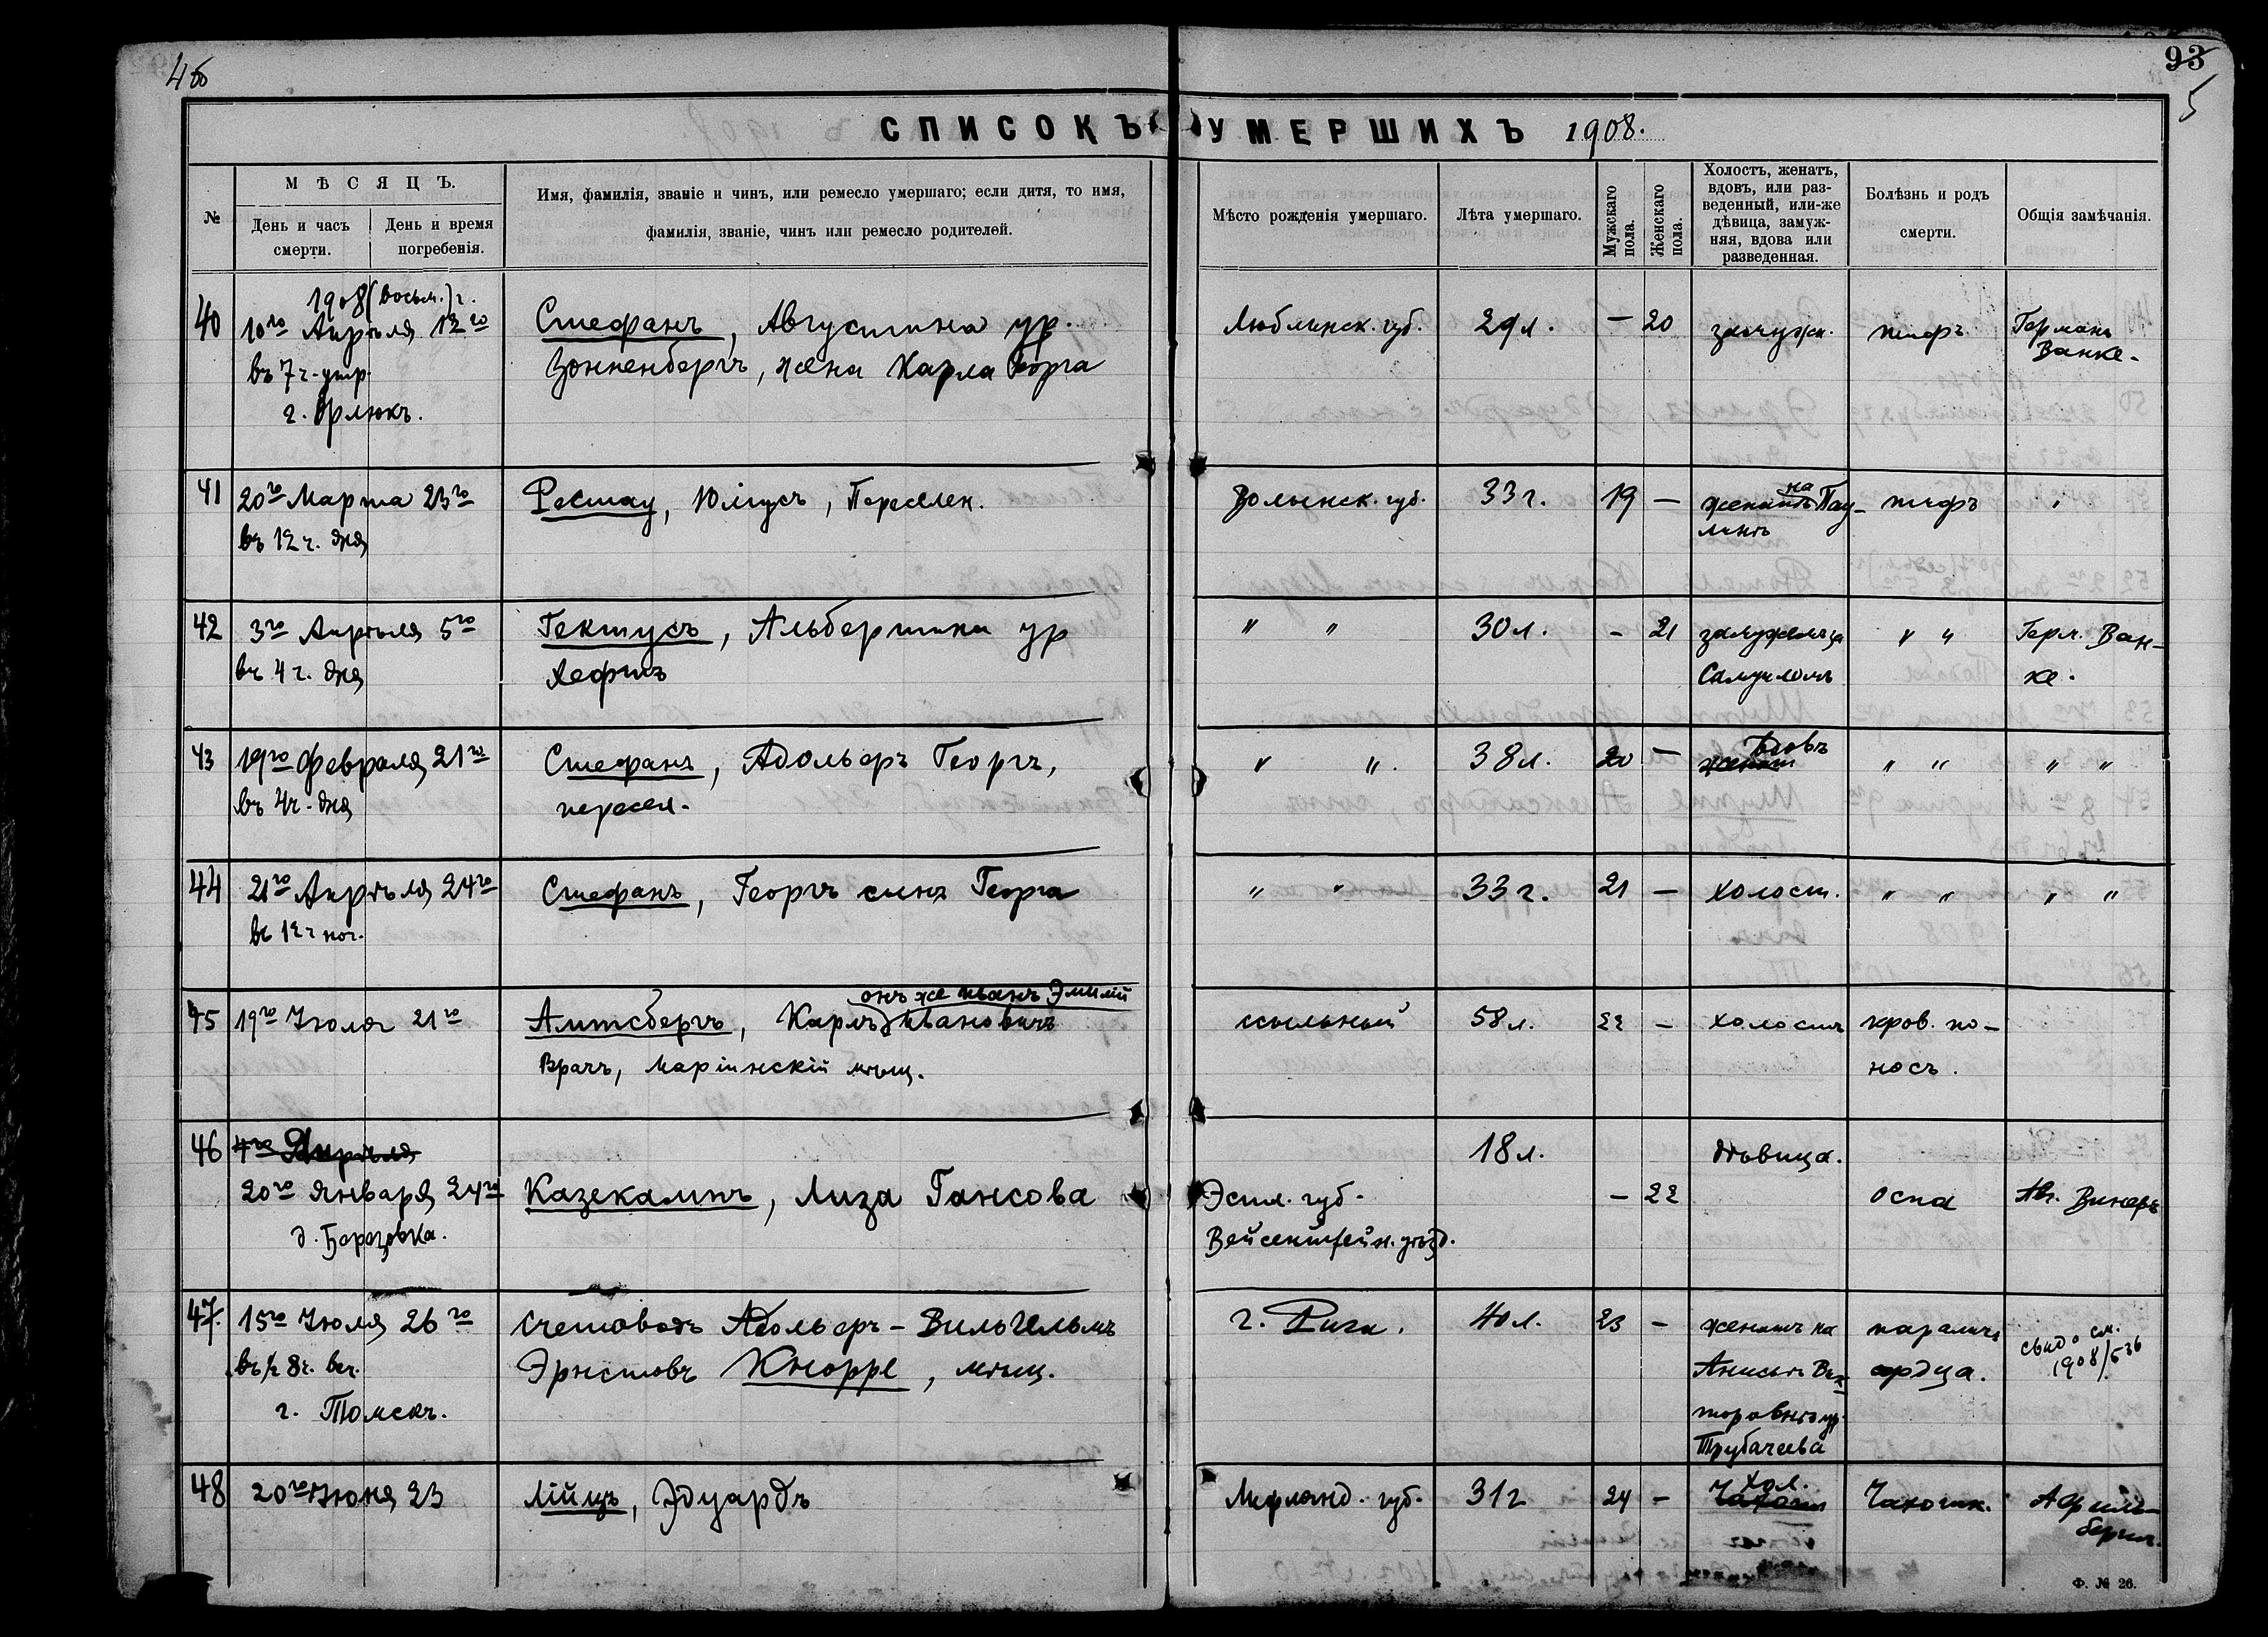 93
5
СПИСОКЪ УМЕРШИХЪ 1908.
№
МѢСЯЦЪ.
День и часъ смерти.
День и время погребенія.
Имя, фамилія, званіе и чинъ, или ремесло умершаго; если дитя, то имя,
фамилія, званіе, чинъ или ремесло родителей.
Мѣсто рожденія умершаго.
Лѣта умершаго.
Мужскаго пола.
Женскаго пола.
Холостъ, женатъ,
вдовъ, или раз-
веденный, или-же
дѣвица, замуж-
няя, вдова или
разведенная.
Болѣзнь и родъ
смерти.
Общія замѣчанія.
1908 (восьм.) г.
40 10го Апрѣля 12го Стефанъ, Августина ур. Люблинск. губ. 29 л. — 20 замужн. тифъ Германъ
въ 7 ч. утр. Зонненбергъ, жена Карла Георга Ванке.
г. Орлюкъ.
41 20го Марта 23го Юліусъ, Переселен. Волынск. губ. 33 г. 19 — женатъ на Пау- тифъ "
въ 12 ч. дня линѣ
42 3го Апрѣля 5го Гектусъ, Альбертина ур " " 30 л. - 21 замужемъ за " " Герм. Ван-
въ 4 ч. дня Хефтъ Самуиломъ ке.
43 19го Февраля 21го Стефанъ, Адольфъ Георгъ, " ". 38 л. 20 — вдовъ " " " "
въ 4 ч. дня пересел.
44 21го Апрѣля 24го Стефанъ, Георгъ сынъ Георга " " 33 г. 21 — холост. " " " "
въ 12 ч ноч.
онъ же Иванъ Эмилій
45 19го Іюля 21го Амтсбергъ, Карлъ Ивановичъ ссыльный 58 л. 22 — холостъ кров. по-
Врачъ, Маріинскій мѣщ. носъ.
46 4го Апрѣля 18 л. дѣвица.
20го Января 24го Казекампъ, Лиза Гансова Эстл. губ. — 22 оспа Ав. Винеръ
д. Березовка. Вейсенштейн. уѣзд.
47. 15го Іюля 26го Счетоводъ Адольфъ-Вильгельмъ г. Рига. 40 л. 23 — женатъ на параличъ см.
въ ½ 8 ч. веч. Эрнстовъ Кнорре, мѣщ. Анисьѣ Вик- сердца. 1908/536
г. Томскъ. торовнѣ ур.
Трубачева
48 20го Іюня 23 Лійцъ, Эдуардъ Лифлянд. губ. 31 г 24 — хол. Чахотк.
Ф. № 26.